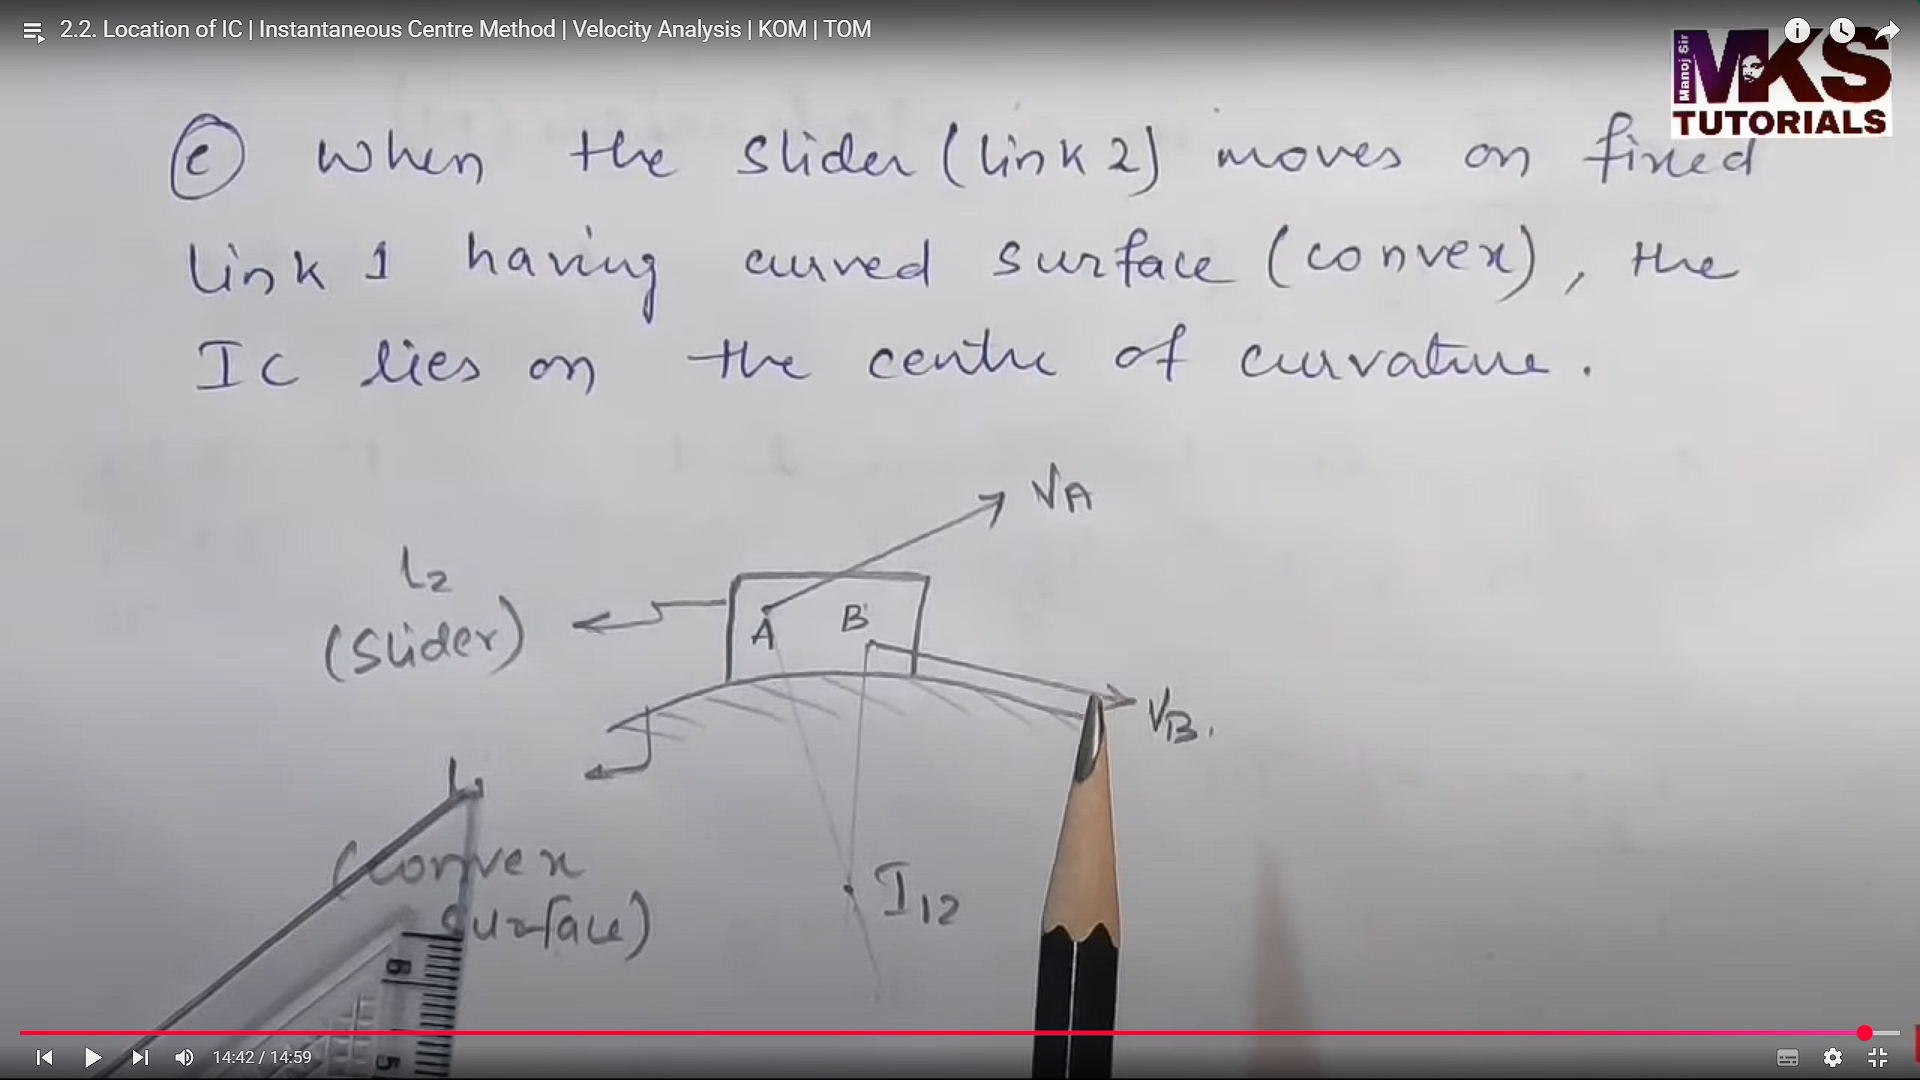 2.2. Location of IC | Instantaneous Centre Method | Velocity Analysis | KOM | TOM
Manoj Sir
MKS
TUTORIALS
(c) When the slider (link 2) moves on fixed
link 1 having curved surface (convex), the
IC lies on the centre of curvature.
VA
L2
(Slider)
A
B
VB.
L1
(convex
surface)
I12
6
5
14:42 / 14:59